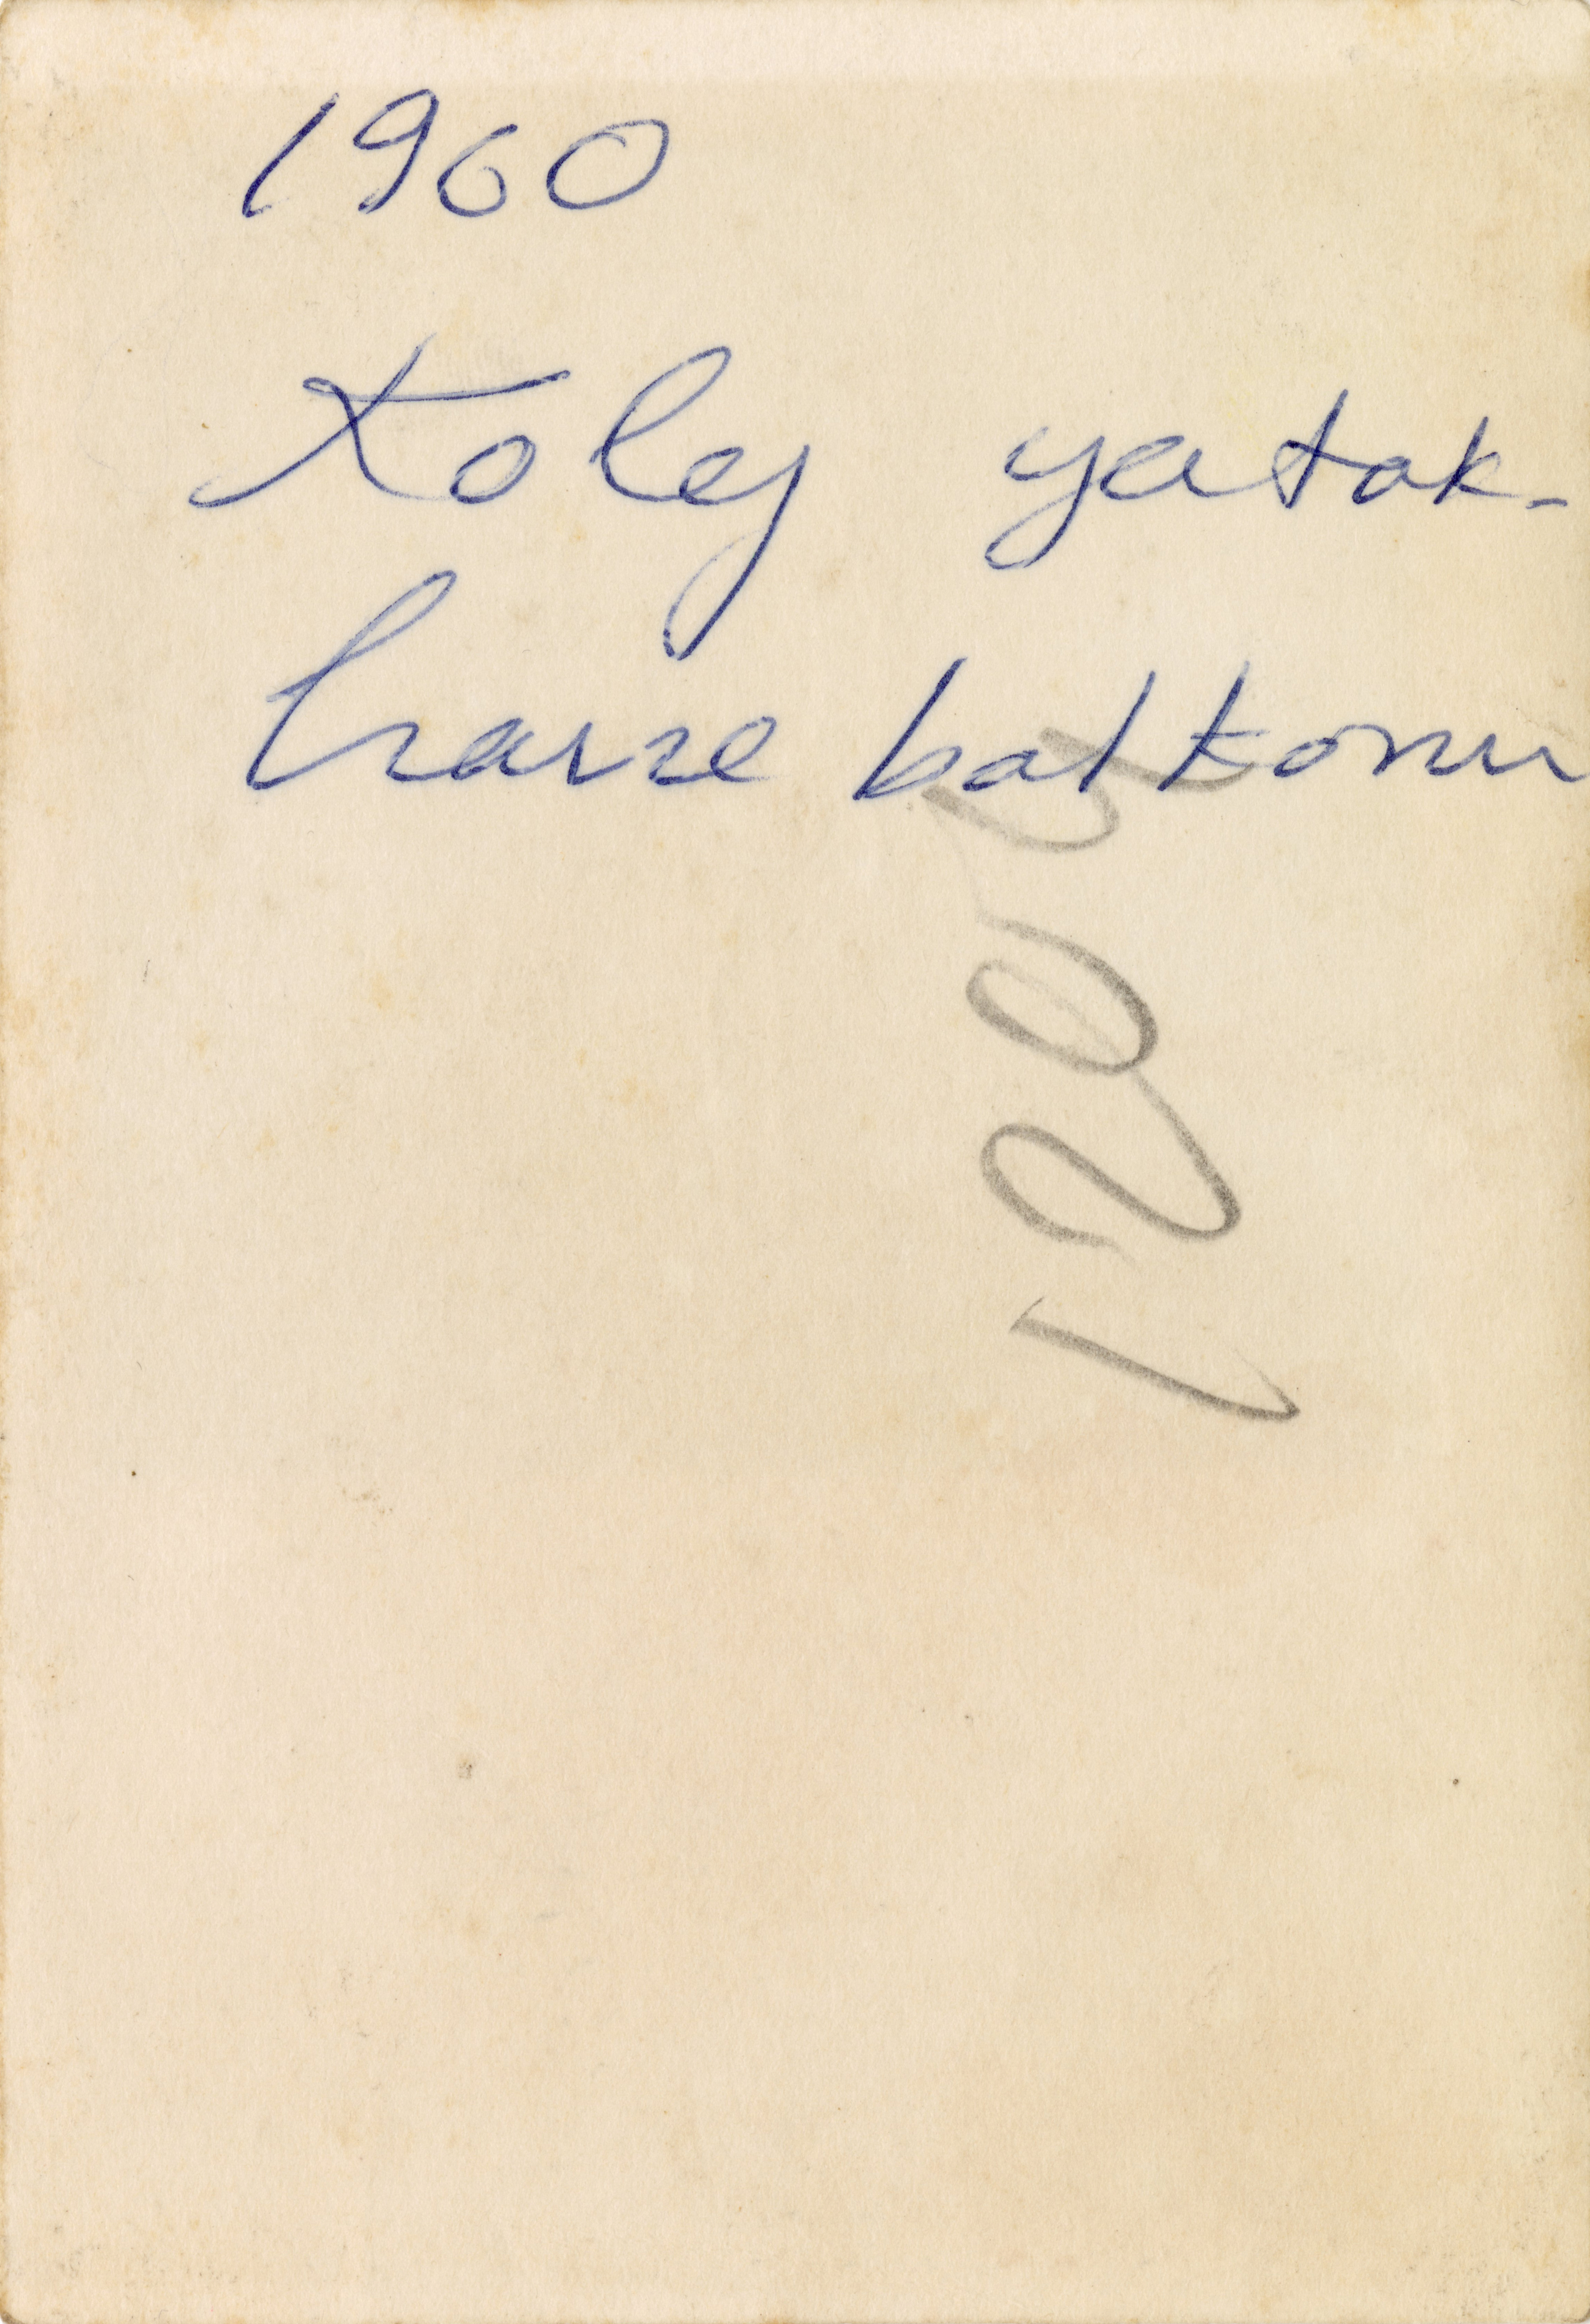 1960
Kolej yatak-
hane balkonu
1205